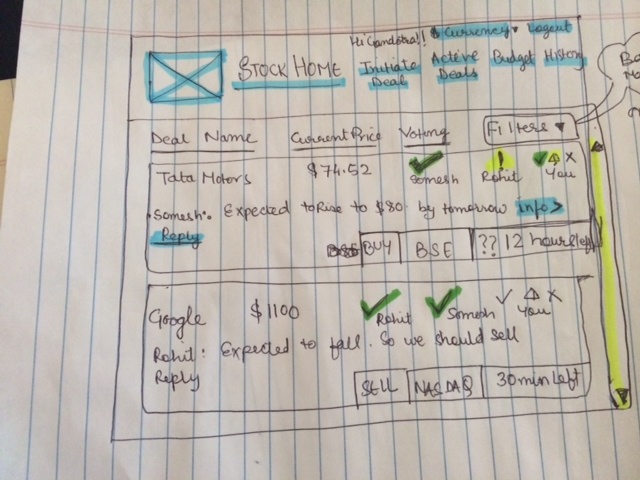 Hi Gandotra!! $ Currency ▾ Logout
STOCK HOME Initiate Deal Active Deals Budget History
Deal Name Current Price Voting Filters ▼
Tata Motors $74.52 ✓ Somesh ! Rohit ✓ △ X You
Somesh: Expected to Rise to $80 by tomorrow info>
Reply
BUY BSE ?? 12 hours left
Google $1100 ✓ Rohit ✓ Somesh ✓ △ X You
Rohit: Expected to fall. So we should sell
Reply
SELL NASDAQ 30 min left